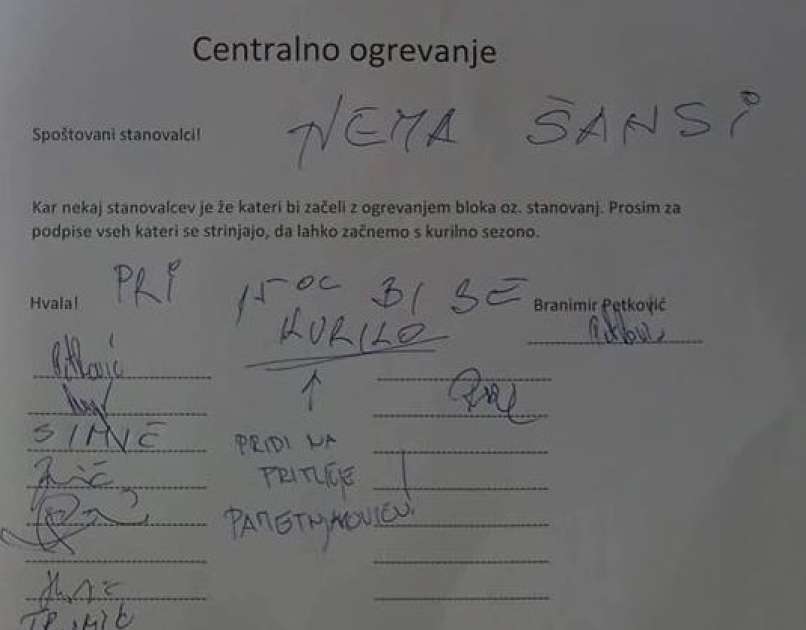 Centralno ogrevanje
NEMA ŠANSI
Spoštovani stanovalci!
Kar nekaj stanovalcev je že kateri bi začeli z ogrevanjem bloka oz. stanovanj. Prosim za
podpise vseh kateri se strinjajo, da lahko začnemo s kurilno sezono.
PRI 15°C BI SE
Hvala!
Branimir Petković
KURILO
Petković
SIMIČ
PRIDI NA
PRITLIČJE
PAMETNJAKOVIČU!